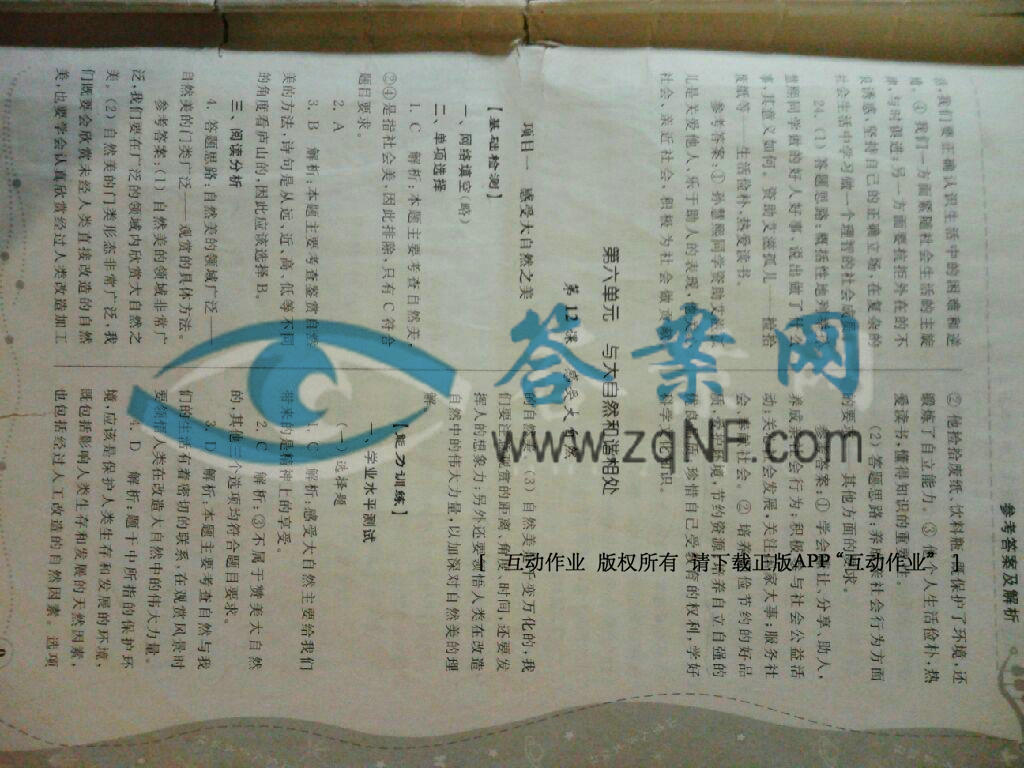 参考答案及解析
我，我们要正确认识生活中的困难和逆
④我们一方面紧随社会生活的主旋
与时俱进；另一方面要抗拒外在的不
良诱惑，坚持自己的正确立场，在复杂的
社会生活中学习做一个理智的社会成员。
24.（1）答题思路：概括性地列举
慧熙同学做的好人好事、说出做了什么
事，其意义如何。资助艾滋孤儿——捡拾
废纸等——生活俭朴、热爱读书。
参考答案：①孙慧熙同学资助艾滋孤
儿是关爱他人、乐于助人的表现，他
社会、亲近社会，积极为社会做贡献
②他捡拾废纸、饮料瓶，既保护了环境，还
锻炼了自立能力。③他个人生活俭朴，热
爱读书，懂得知识的重要性。
（2）答题思路：养成亲社会行为方面
的要求，其他方面的要求。
参考答案：①学会谦让、分享、助人，
养成亲社会行为；积极参与社会公益活
动；关心社会发展，关注国家大事；服务社
会、奉献社会。②培养勤俭节约的好品
质，爱护环境，节约资源；培养自立自强的
优良品质，珍惜自己受教育的权利，学好
科学文化知识。
第六单元 与大自然和谐相处
第12课 感受大自然
项目一 感受大自然之美
【基础检测】
一、网络填空（略）
二、单项选择
1. C 解析：本题主要考查自然美，
②④是指社会美，因此排除，只有C符合
题目要求。
2. A
3. B 解析：本题主要考查鉴赏自然
美的方法，诗句是从远、近、高、低等不同
的角度看庐山的，因此应该选择B。
三、阅读分析
4. 答题思路：自然美的领域广泛——
自然美的门类广泛——观赏的具体方法。
参考答案：（1）自然美的领域非常广
泛，我们要在广泛的领域内欣赏大自然之
美。（2）自然美的门类形态非常广泛，我
们既要会欣赏未经人类直接改造的自然
美，也要学会认真欣赏经过人类改造加工
的自然美。（3）自然美是千变万化的，我
们要注意观赏的距离、角度、时间，还要发
挥人的想象力；另外还要领悟人类在改造
自然中的伟大力量，以加深对自然美的理
解。
【能力训练】
一、学业水平测试
（一）选择题
1. C 解析：感受大自然主要给我们
带来的是精神上的享受。
2. C 解析：③不属于赞美大自然
的，其他三个选项均符合题目要求。
3. D 解析：本题主要考查自然与我
们的生活有着密切的联系，在观赏风景时
要领悟人类在改造大自然中的伟大力量。
4. D 解析：题干中所指的保护环
境，应该是保护人类生存和发展的环境，
既包括影响人类生存和发展的天然因素，
也包括经过人工改造的自然因素。选项
答案网
www.zqNF.com
互动作业 版权所有 请下载正版APP“互动作业”